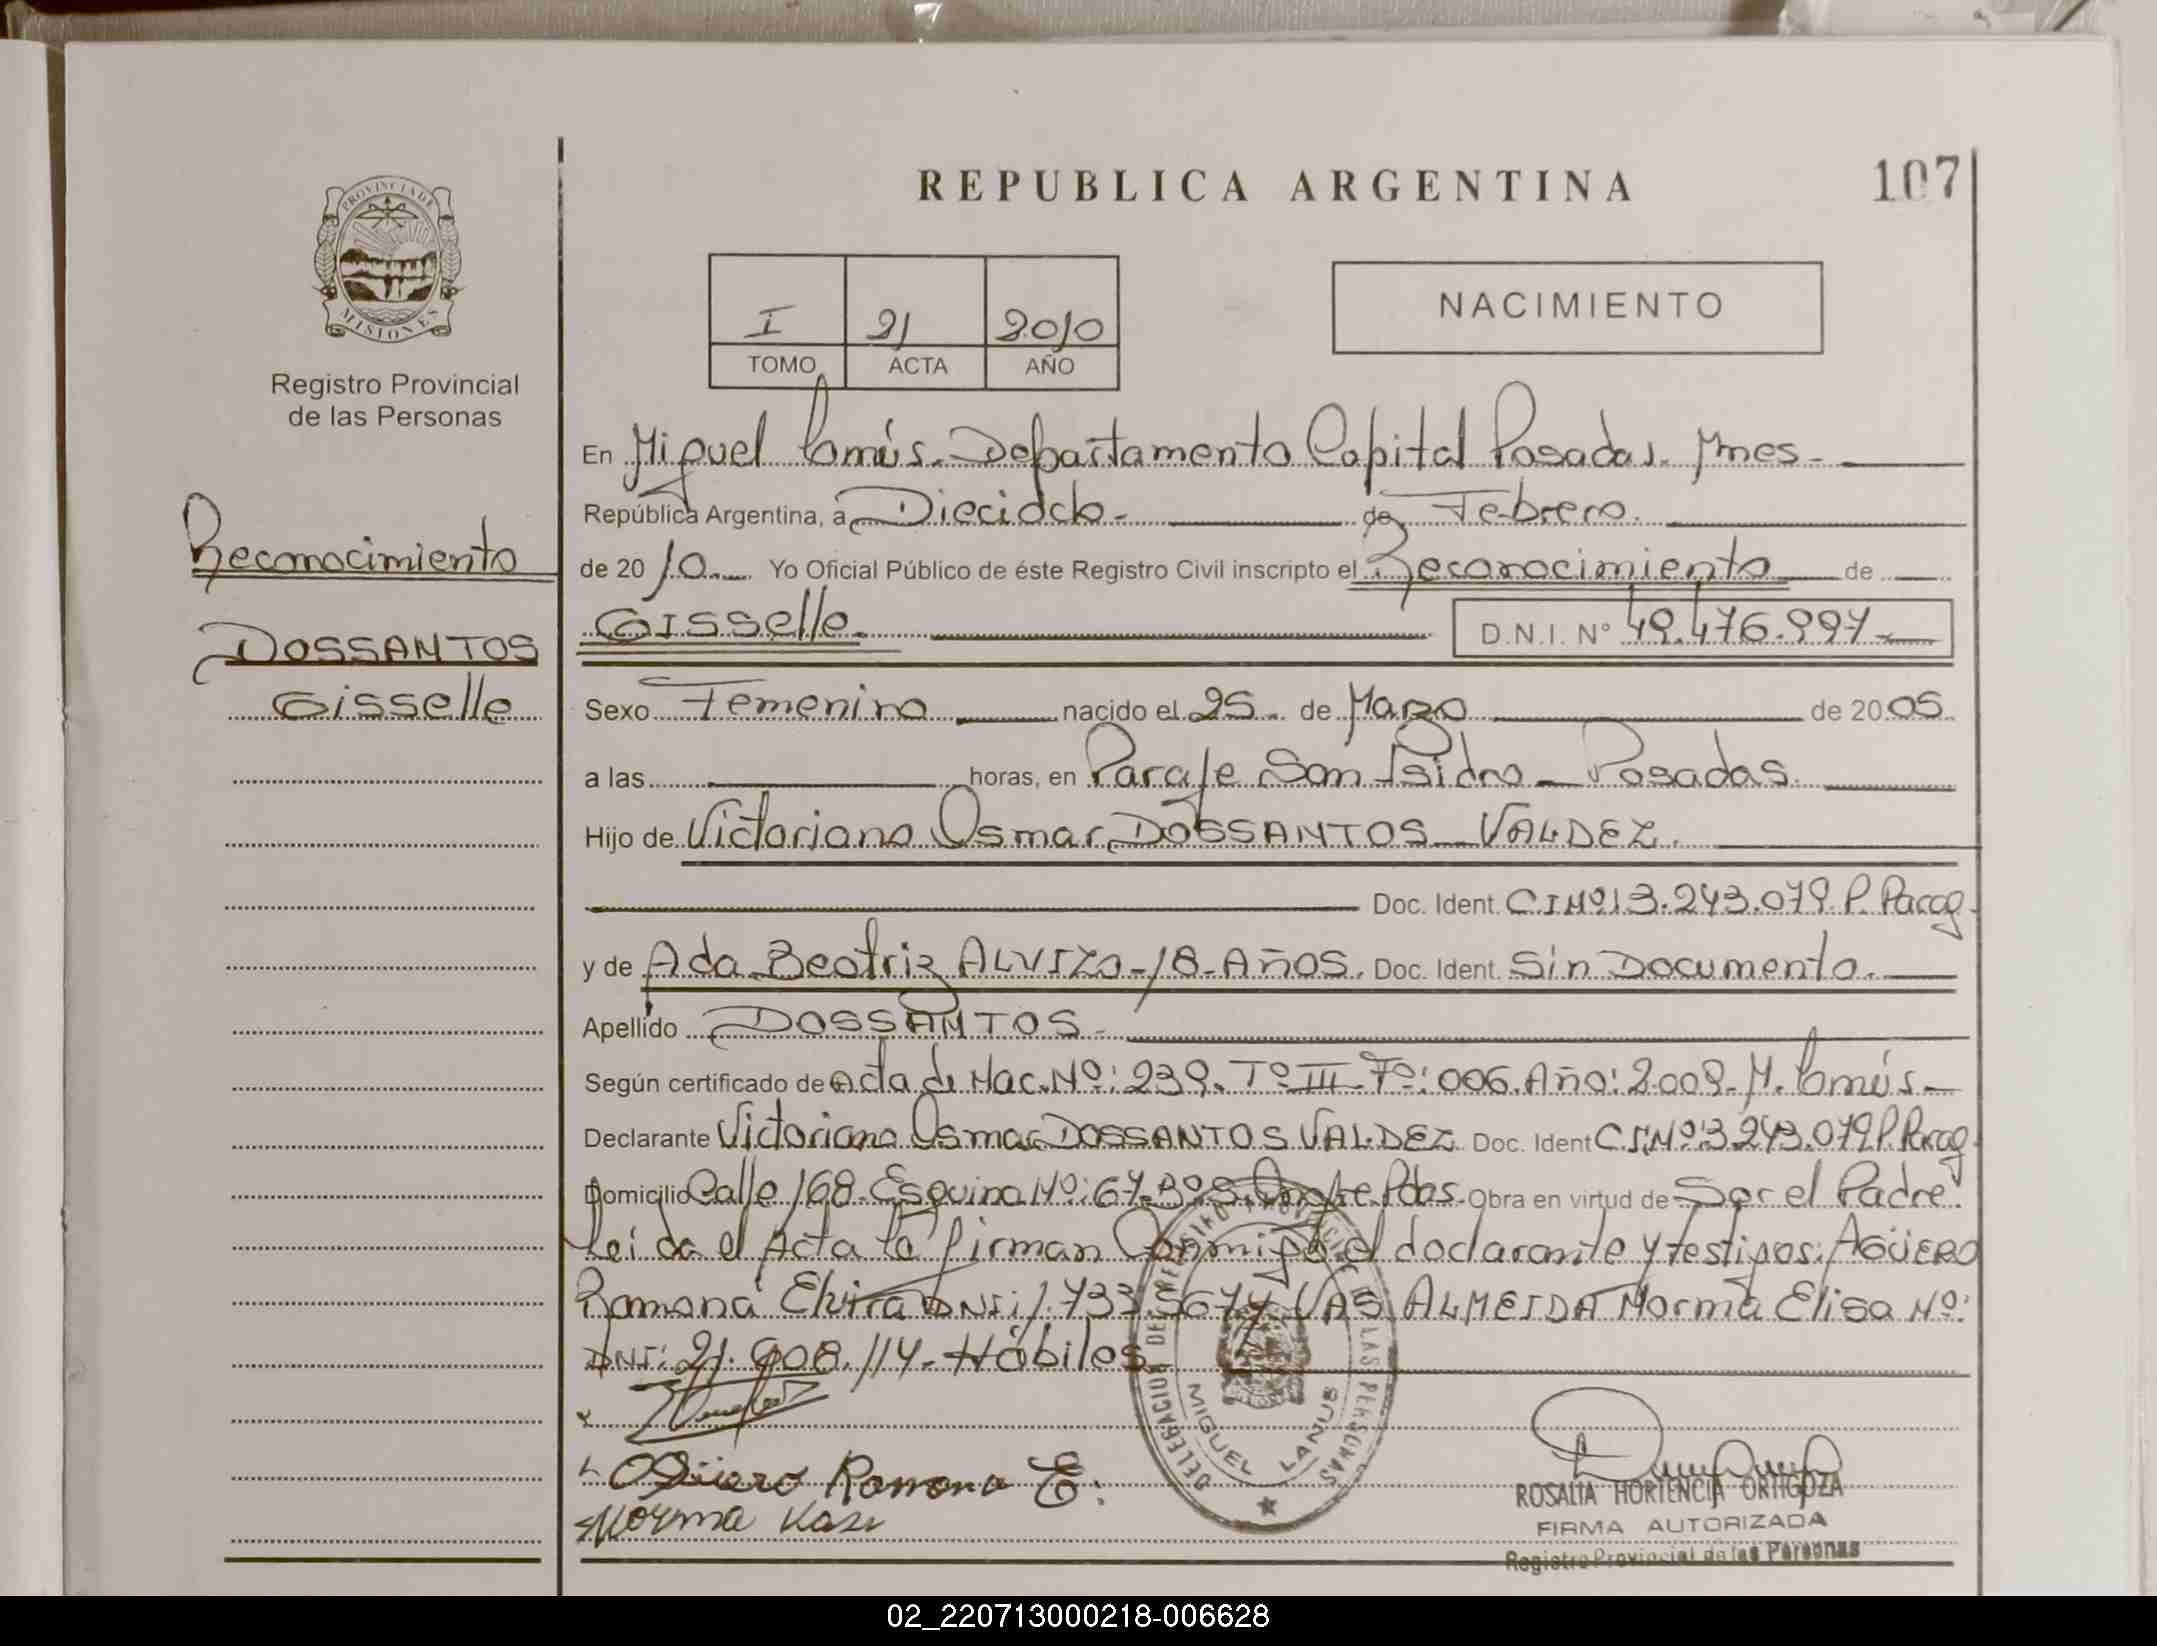 REPUBLICA ARGENTINA
107
PROVINCIA DE
MISIONES
Registro Provincial
de las Personas
I 21 2010
TOMO ACTA AÑO
NACIMIENTO
Reconocimiento
DOSSANTOS
Gisselle
En Miguel Lanús. Departamento Capital Posadas. Mnes.
República Argentina, a Dieciocho de Febrero.
de 2010 Yo Oficial Público de éste Registro Civil inscripto el Reconocimiento de
Gisselle. D.N.I. Nº 49.476.997
Sexo Femenino nacido el 25 de Marzo de 2005
a las horas, en Paraje San Isidro - Posadas.
Hijo de Victoriano Osmar DOSSANTOS VALDEZ.
Doc. Ident. CI Nº 3.243.079 P. Parag.
y de Ada Beatriz ALVIZO - 18 - AÑOS. Doc. Ident. Sin Documento.
Apellido DOSSANTOS.
Según certificado de Acta de Nac. Nº: 239. Tº III Fº: 006. Año: 2009. M. Lanús.
Declarante Victoriano Osmar DOSSANTOS VALDEZ Doc. Ident C.I. Nº: 3.243.079 P. Parag.
Domicilio Calle 168. Esquina Nº: 67. Bº S. Onofre Pdas. Obra en virtud de Ser el Padre.
Leida el Acta la firman Conmigo el declarante y testigos: AGÜERO
Ramona Elvira DNI: 1.733.567 y VAS ALMEIDA Norma Elisa Nº:
DNI: 21.908.114. Hábiles
Agüero Ramona E.
Norma
DELEGACION DEL REGISTRO PROVINCIAL DE LAS PERSONAS
MIGUEL LANUS
ROSALIA HORTENCIA ORTIGOZA
FIRMA AUTORIZADA
Registro Provincial de las Personas
02_220713000218-006628